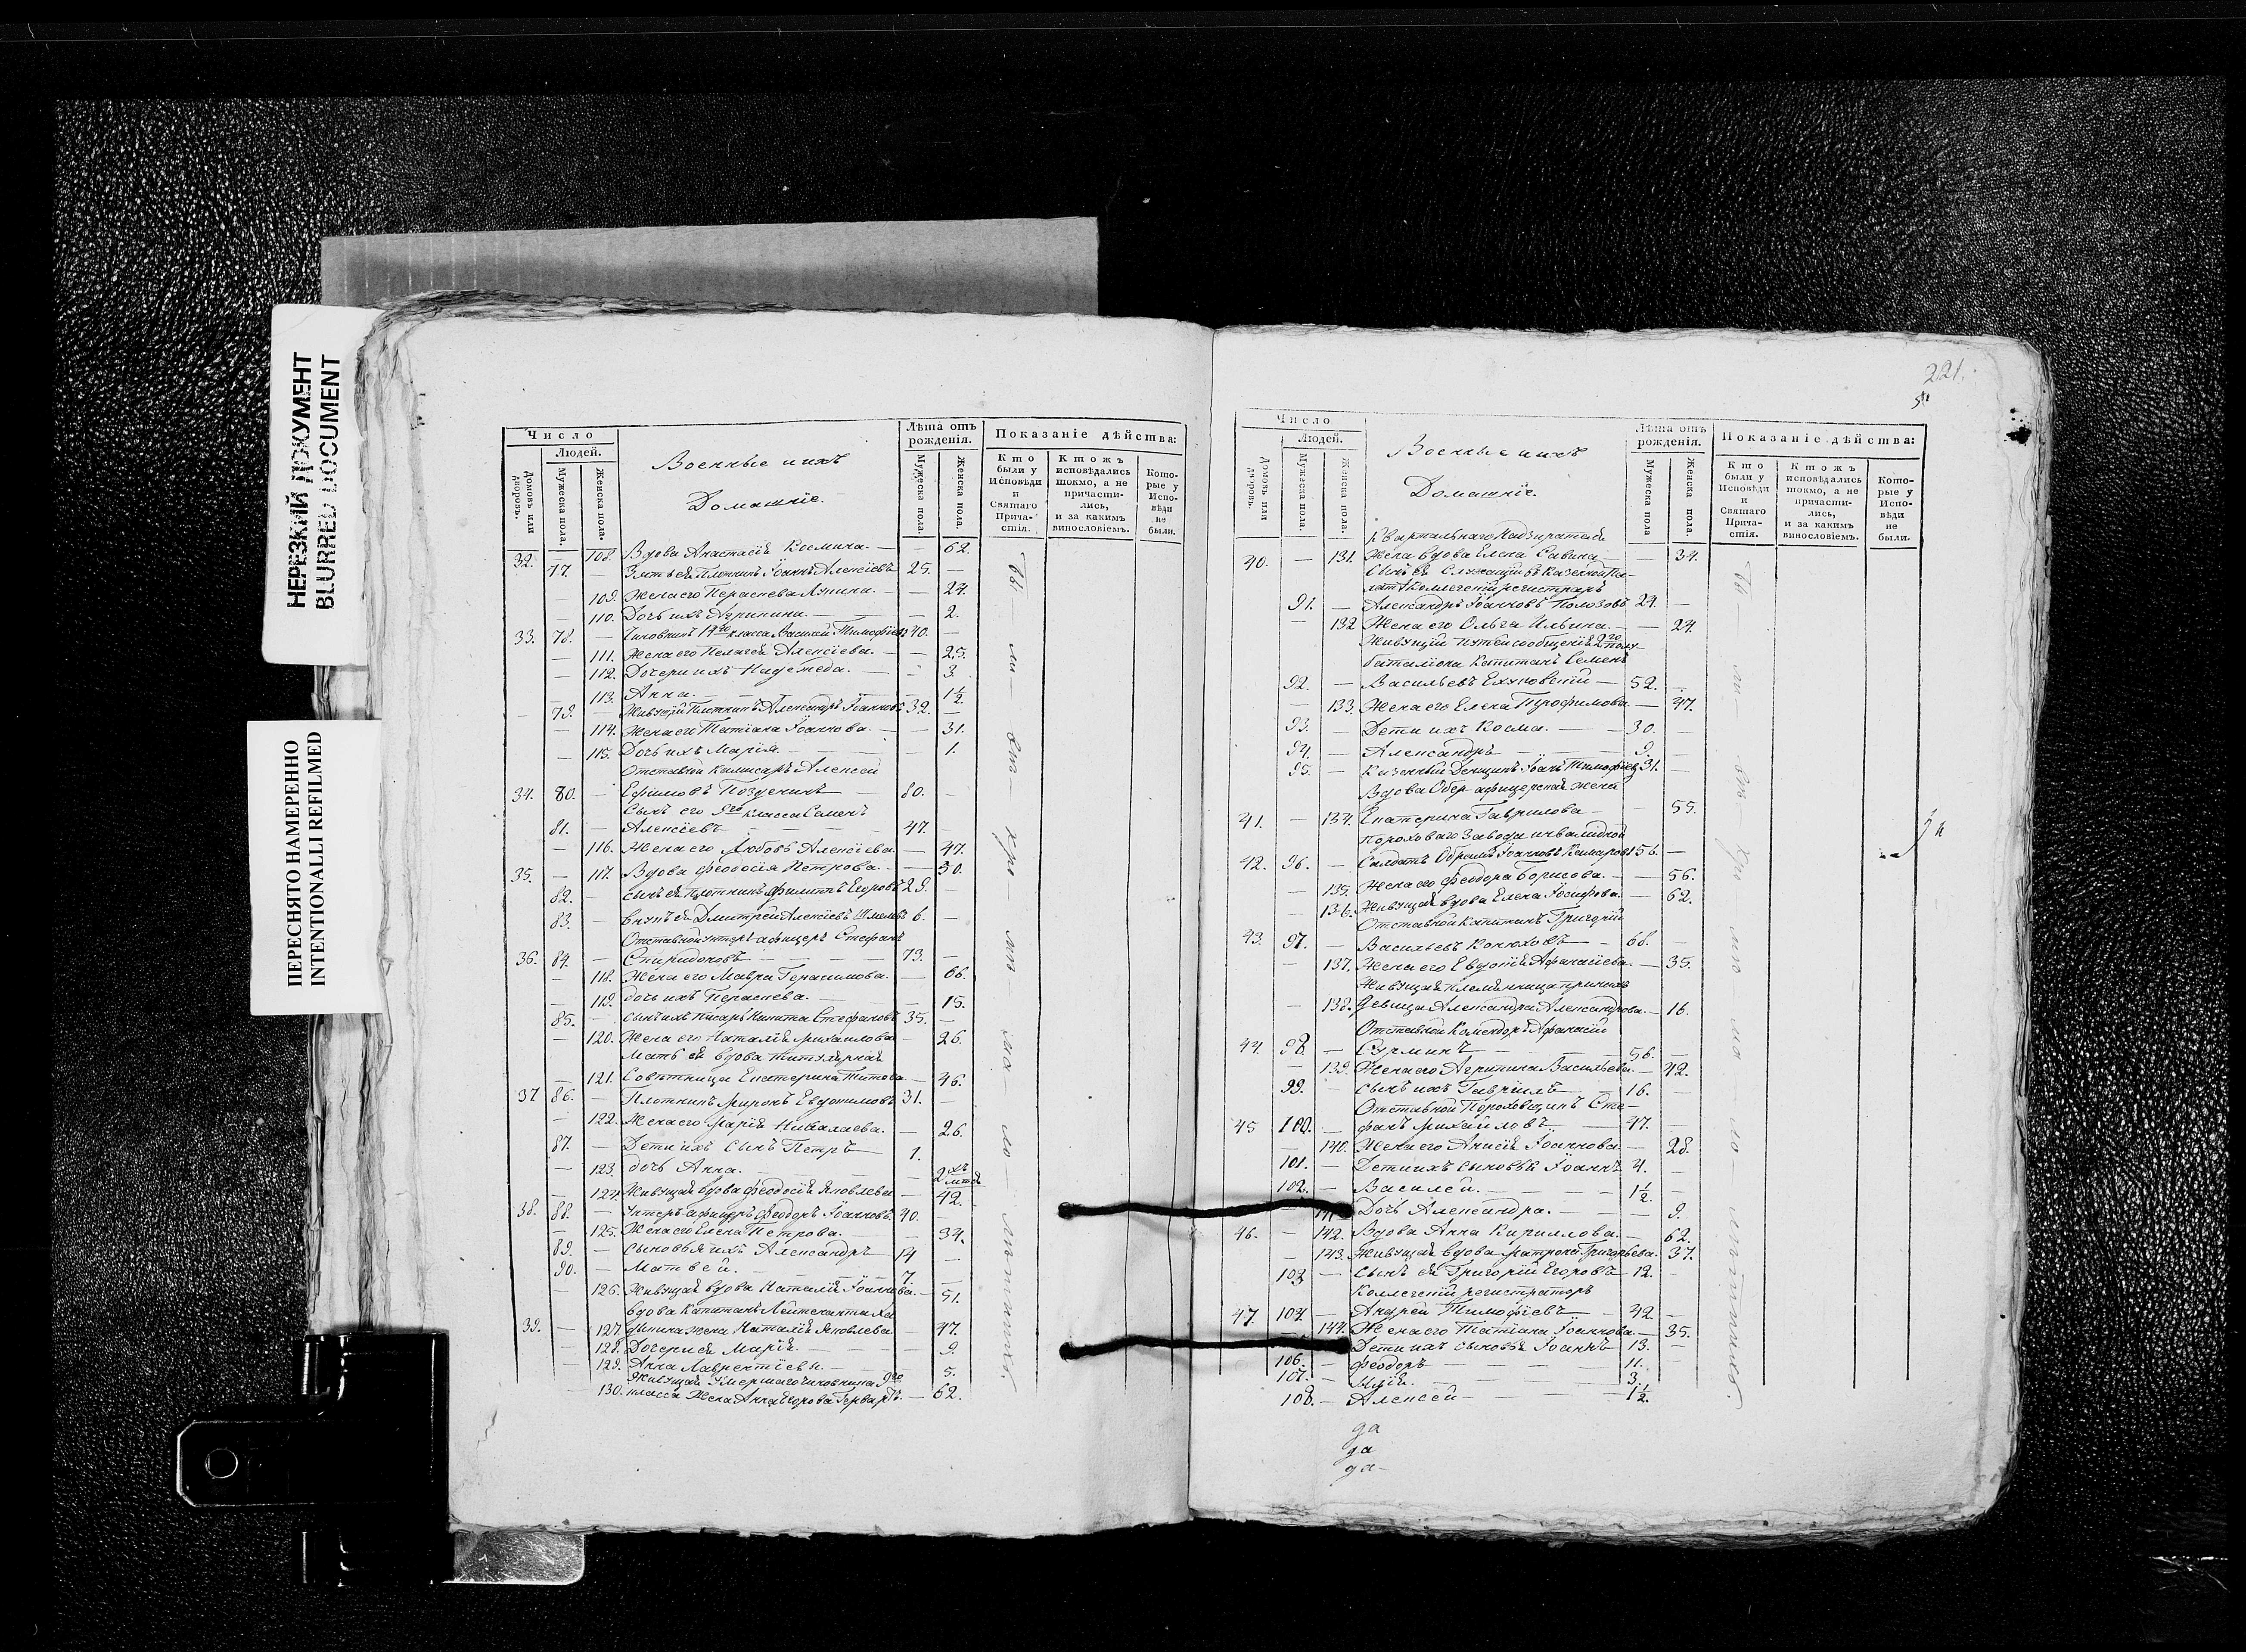 НЕРЕЗКИЙ ДОКУМЕНТ
BLURRED DOCUMENT
ПЕРЕСНЯТО НАМЕРЕННО
INTENTIONALLI REFILMED
Число
Людей.
Домовъ или дворовъ.
Мужеска пола.
Женска пола.
Военные и ихъ
Домашніе.
Лѣта отъ рожденія.
Мужеска пола.
Женска пола.
Показаніе дѣйства:
Кто были у Исповѣди и Святаго Причастія.
Ктожъ исповѣдались токмо, а не причастились, и за какимъ винословіемъ.
Которые у Исповѣди не были.
32. — 108. Вдова Анастасія Космина. — 62.
77. — Зять ея Плотникъ Іоаннъ Алексіевъ 25. —
— 109. Жена его Параскева Лукина. — 24.
— 110. Дочь ихъ Агрипина. — 2.
33. 78. — Чиновникъ 14го класса Василей Тимофіевъ 40. —
— 111. Жена его Пелагея Алексіева. — 25.
— 112. Дочери ихъ Надежда. — 3.
— 113. Анна. — 1½
79. — Живущій Плотникъ Александръ Іоанновъ 32. —
— 114. Жена его Татіана Іоаннова. — 31.
— 115. Дочь ихъ Марія. — 1.
Отставной Комисаръ Алексей
34. 80. — Ефимовъ 80. —
Сынъ его 9го класса Семенъ
81. — Алексіевъ 47. —
— 116. Жена его Любовь Алексіева. — 47.
35. — 117. Вдова Феодосія Петрова. — 50.
82. — сынъ ея Плотникъ Филиппъ Егоровъ 29. —
83. — внукъ ея Дмитрей Алексіевъ 6. —
Отставной унтеръ-афицеръ Стефанъ
36. 84. — Спиридоновъ 73. —
— 118. Жена его Мавра Герасимова. — 66.
— 119. дочь ихъ Параскева. — 15.
85. — сынъ ихъ писарь Никита Стефановъ 35. —
— 120. Жена его Наталія Михаилова — 26.
Мать ея вдова титулярная
— 121. Совѣтница Екатерина Титова — 46.
37 86. — Плотникъ Миронъ Евдокимовъ 31. —
— 122. Жена его Марія Николаева. — 26.
87. — Дети ихъ Сынъ Петръ 1.
— 123. дочь Анна. — 2хъ мсцъ
— 124. Живущая вдова Феодосія Яковлева — 42.
38. 88. — Унтеръ-афицеръ Феодоръ Іоанновъ. 40.
— 125. Жена его Елена Петрова. — 34.
89. — Сыновья ихъ Александръ 14 —
90. — Матвей. 7. —
— 126. Живущая вдова Наталія Іоаннова. — 51.
вдова Капитанъ Лейтенанта
39. — 127. жена Наталія Яковлева — 47.
— 128. Дочери ея Марія. — 9.
— 129. Анна Лаврентіевы. 5.
Живущая умершаго чиновника 9го
— 130. класса Жена Анна Егорова — 62.
221.
Число
Людей.
Домовъ или дворовъ.
Мужеска пола.
Женска пола.
Военные и ихъ
Домашніе.
Лѣта отъ рожденія.
Мужеска пола
Женска пола.
Показаніе дѣйства:
Кто были у Исповѣди и Святаго Причастія.
Ктожъ исповѣдались токмо, а не причастились, и за какимъ винословіемъ.
Которые у Исповѣди не были.
Квартальнаго Надзирателя
40. — 131. Жена вдова Елена Савина — 34.
Сынъ ея Служащій въ Казенной Па-
латѣ Колегской регистраръ
91. — Александръ Іоанновъ Полозовъ 24. —
— 132 Жена его Ольга Ильина. — 24.
Живущій путей сообщенія 2го полу-
баталіона Капитанъ Семенъ
92. — Васильевъ 52. —
— 133. Жена его Елена Трофимова — 47.
93. — Дети ихъ Косма. — 30. —
94. — Александръ 9. —
95. — Казенный Денщикъ Іоанъ Тимофіевъ 31. —
Вдова Обер-афицерская жена
41. — 134. Екатерина Гаврилова — 55.
Пороховаго Завода инвалидной
42. 96. — Солдатъ Іоанновъ Комаровъ 56. —
— 135. Жена его Феодора Борисова. — 56.
— 136. Живущая вдова Елена Іосифова. — 62.
Отставной Капитанъ Григорій
43. 97. — Васильевъ Конюховъ 68. —
— 137. Жена его Евдокія Афанасіева. — 35.
Живущая племянница
— 138. девица Александра Александрова. — 16.
Отставной Афанасій
44. 98. — Сурминъ 56. —
— 139. Жена его Агрипина Васильева. — 42.
99. — сынъ ихъ Гавріилъ 16. —
Отставной Пороховщикъ Сте-
45 100. — фанъ Михайловъ 47. —
— 140. Жена его Анисія Іоаннова — 28.
101. — Дети ихъ Сыновья Іоаннъ 4. —
102. — Василей. 1½
Дочь Александра. — 9.
46. — 142. Вдова Анна Кирилова. — 62.
— 143. Живущая вдова Матрона Григорьева. 37.
103 — сынъ ея Григорій Егоровъ 12. —
Колегскій регистраторъ
47. 104. — Андрей Тимофіевъ 42. —
144. Жена его Татіана Іоаннова — 35.
Дети ихъ сыновья Іоаннъ 13. —
106. — Феодоръ 11. —
107. — Илія. 3. —
108. — Алексей 1½.
да
да
да